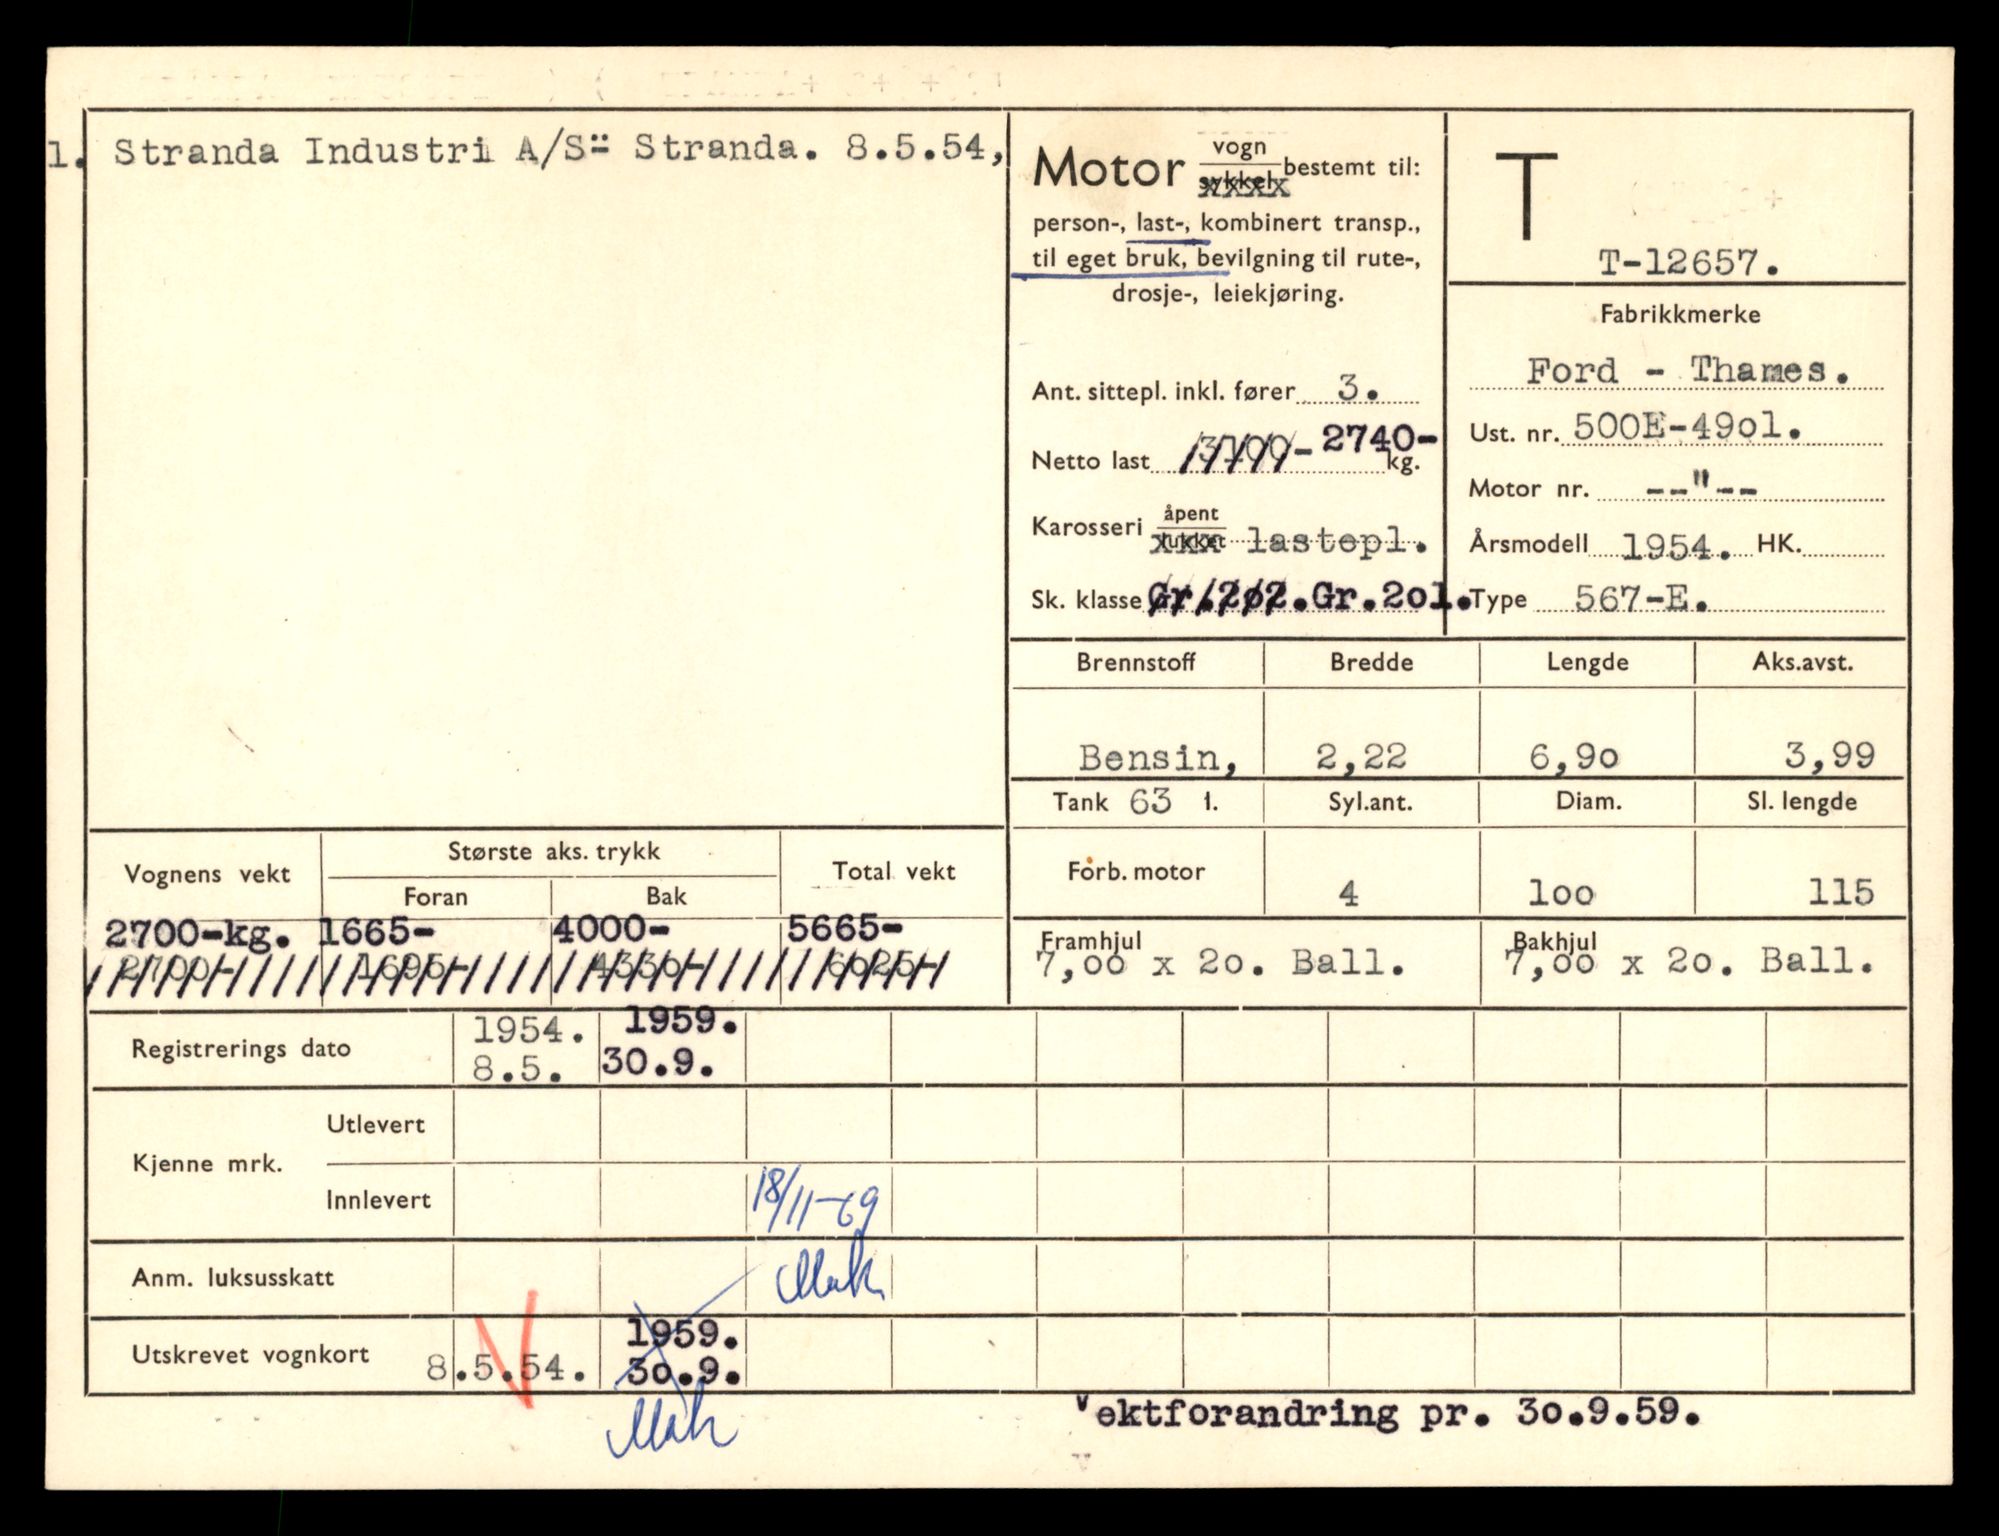 1. Stranda Industri A/S" Stranda. 8.5.54,
Motor vogn bestemt til:
sykkel
person-, last-, kombinert transp.,
til eget bruk, bevilgning til rute-,
drosje-, leiekjøring.
T
T-12657.
Fabrikkmerke
Ford - Thames.
Ant. sittepl. inkl. fører 3.
Ust. nr. 500E-49ol.
Netto last - 2740- kg.
Motor nr. --"--
Karosseri åpent lukket lastepl.
Årsmodell 1954. HK.
Sk. klasse Gr.2o2.Gr.2ol.
Type 567-E.
Brennstoff Bredde Lengde Aks.avst.
Bensin, 2,22 6,9o 3,99
Tank 63 l. Syl.ant. Diam. Sl. lengde
Forb. motor 4 loo 115
Framhjul 7,oo x 2o. Ball.
Bakhjul 7,oo x 2o. Ball.
Vognens vekt Største aks. trykk Total vekt
Foran Bak
2700-kg. 1665- 4000- 5665-
2700- 1695- 4330- 6025-
Registrerings dato 1954. 1959.
8.5. 30.9.
Kjenne mrk. Utlevert
Innlevert 18/11-69
Anm. luksusskatt
Utskrevet vognkort 8.5.54. 1959.
3o.9.
Vektforandring pr. 3o.9.59.